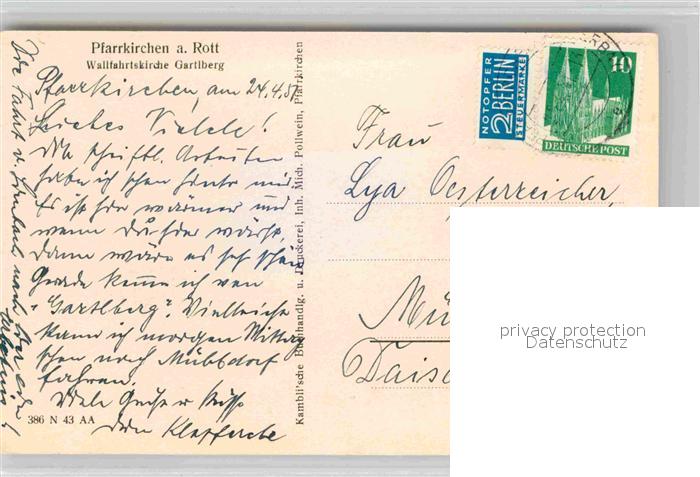 Pfarrkirchen a. Rott
Wallfahrtskirche Gartlberg
Pfarrkirchen, am 24.4.51
Liebes
schriftl. Arbeiten
habe ich schon hinter mir.
Es ist hier wärmer und
wenn Du hier wärst,
dann wäre es sehr schön
Gerade komme ich von
"Gartlberg". Vielleicht
kann ich morgen Mittag
schon nach Mühldorf
fahren.
Viele Grüße u. Küsse
Dein
386 N 43 AA
Die Fahrt v. nach hier
Kambli'sche Buchhandlg. u. Druckerei, Inh. Mich. Pollwein, Pfarrkirchen
NOTOPFER
2 BERLIN
STEUERMARKE
10
DEUTSCHE POST
Frau
Lya Oesterreicher,
Mü
Dais
privacy protection
Datenschutz